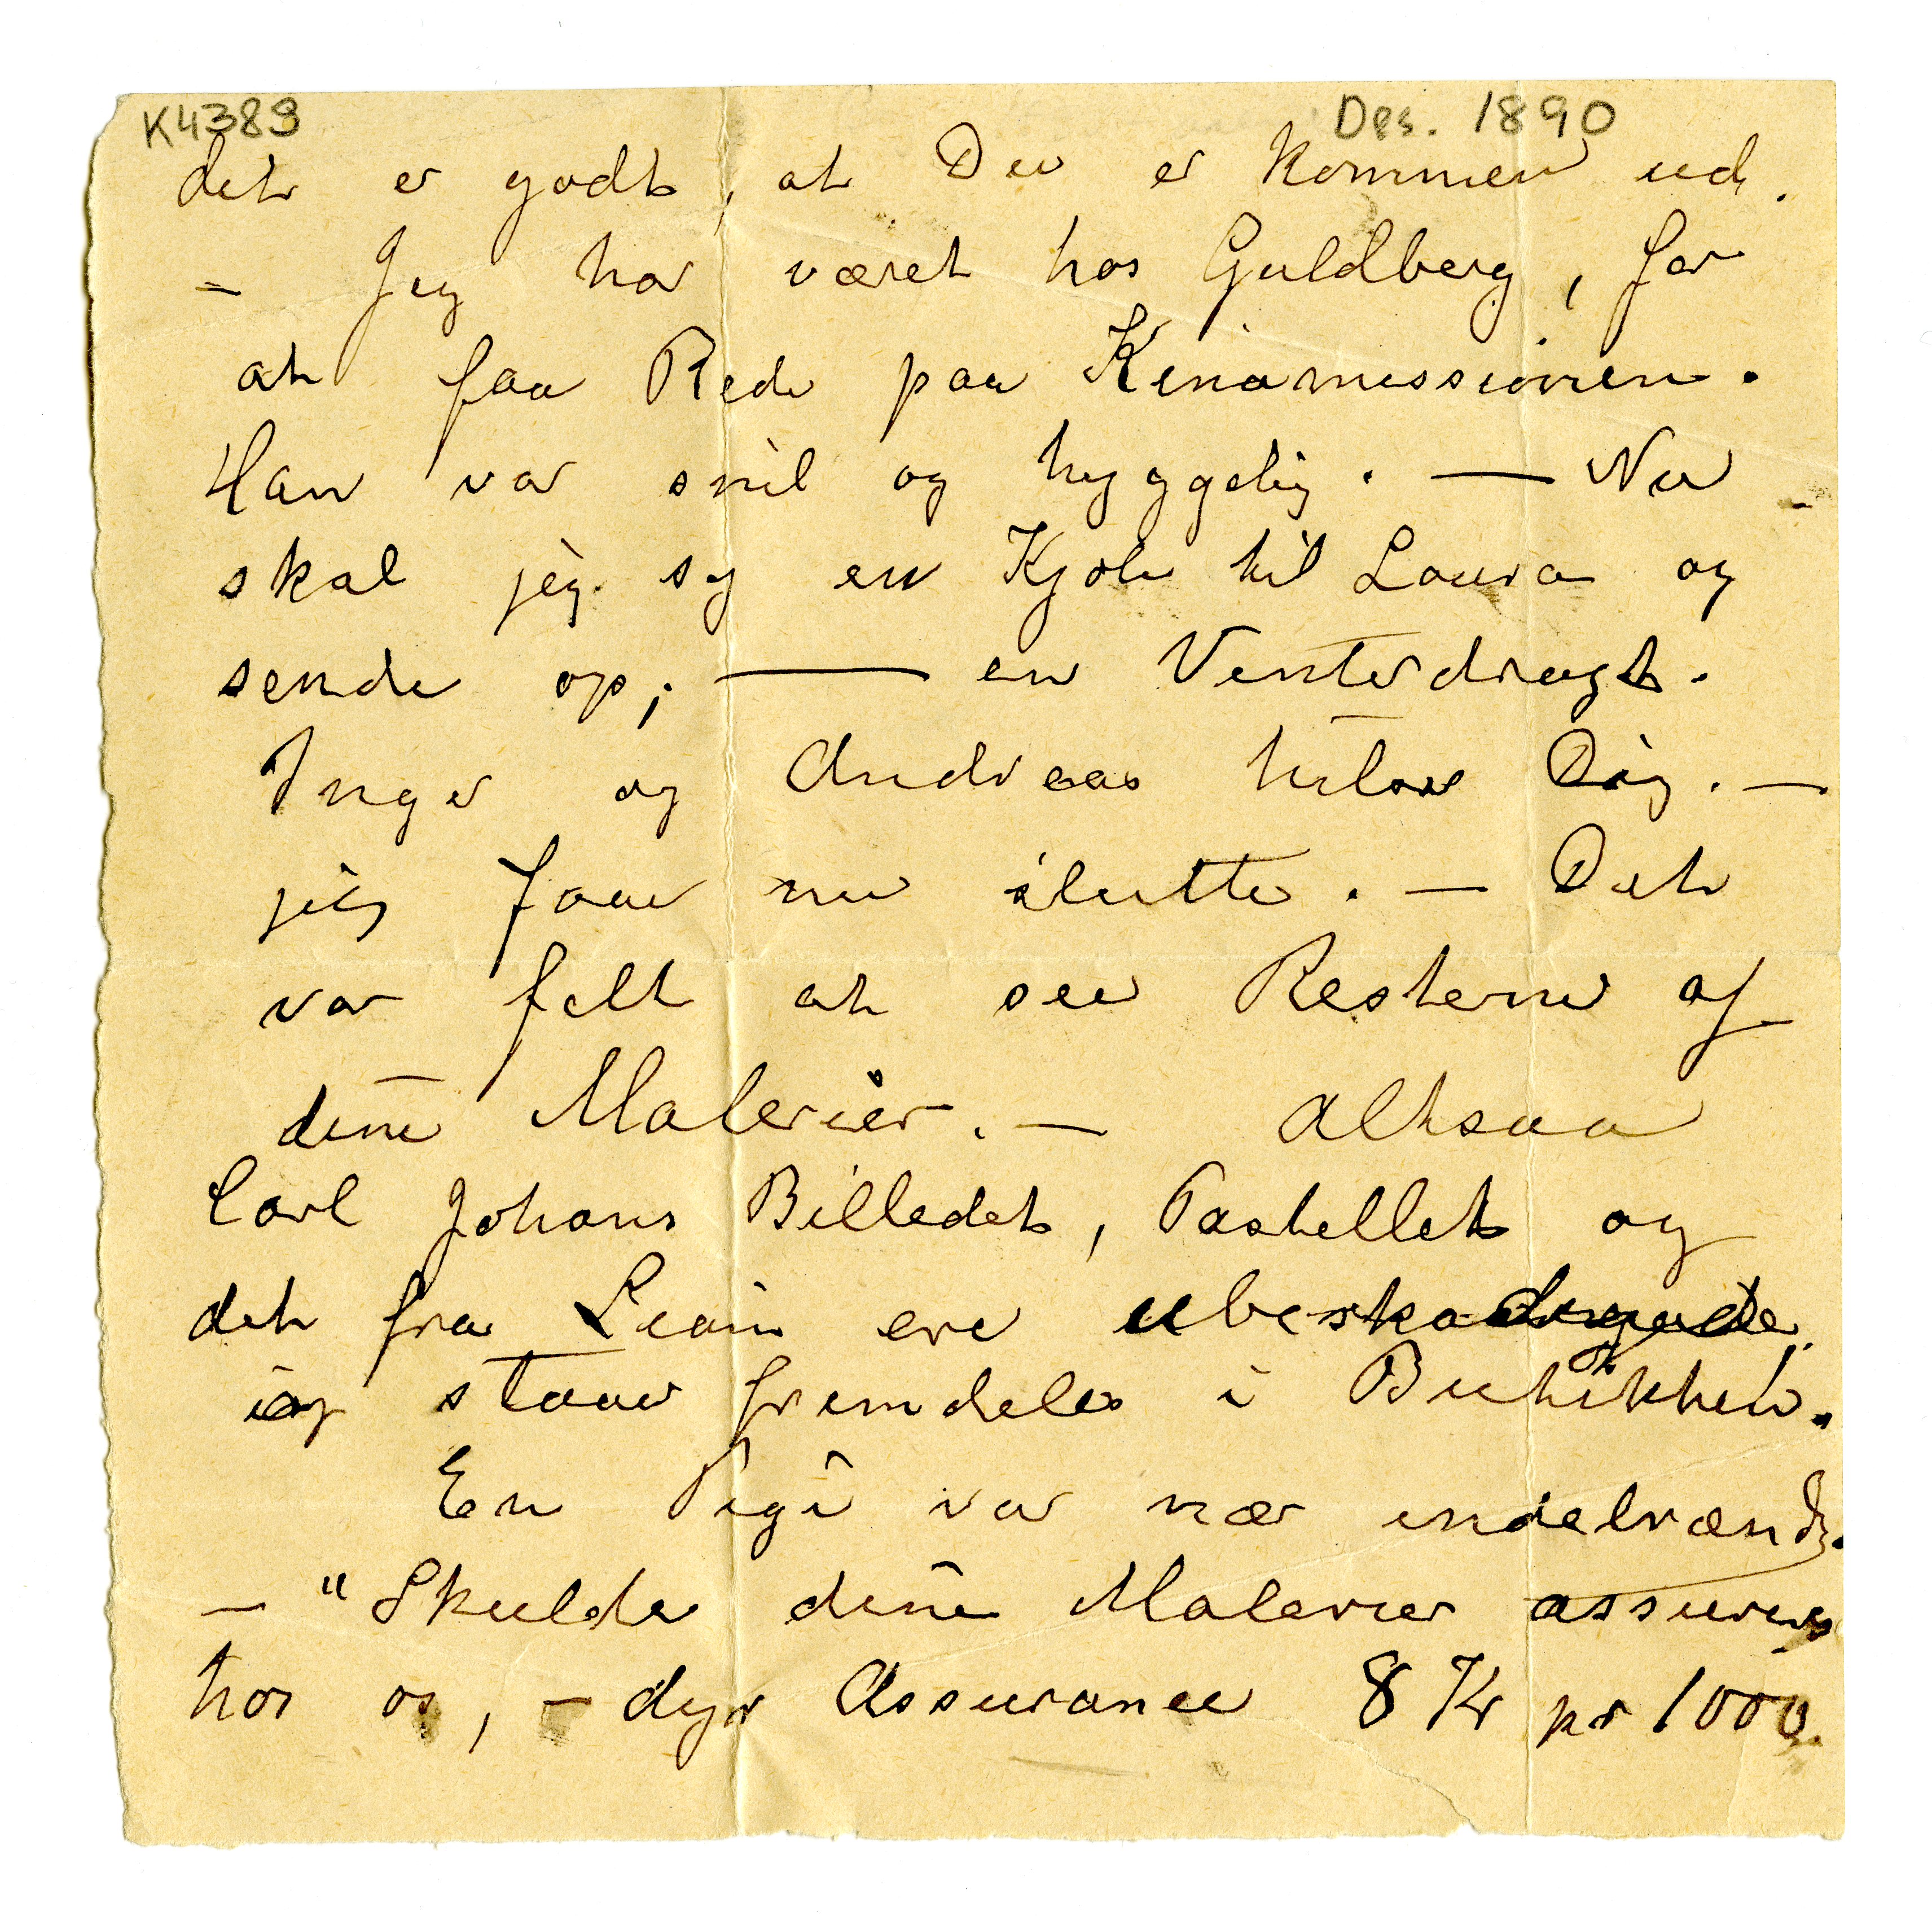 K4389
Des. 1890
det er godt, at Du er kommen ud.
- Jeg har været hos Guldberg, for
at faa Rede paa Kinamissionen.
Han var snil og hyggelig. — Nu
skal jeg sy en Kjole til Laura og
sende op; — en Vinterdragt.
Inger og Andreas hilser Dig. —
jeg faar nu slutte. — Det
var fælt at see Resterne af
dine Malerier. — Altsaa
Carl Johans Billedet, Pastellet og
det fra ere ubeskadigede
og staar fremdeles i Butikken.
En Pige var nær indebrændt.
- "Skulde dine Malerier assureres
hos os, - dyr Assurance 8 Kr pr 1000.